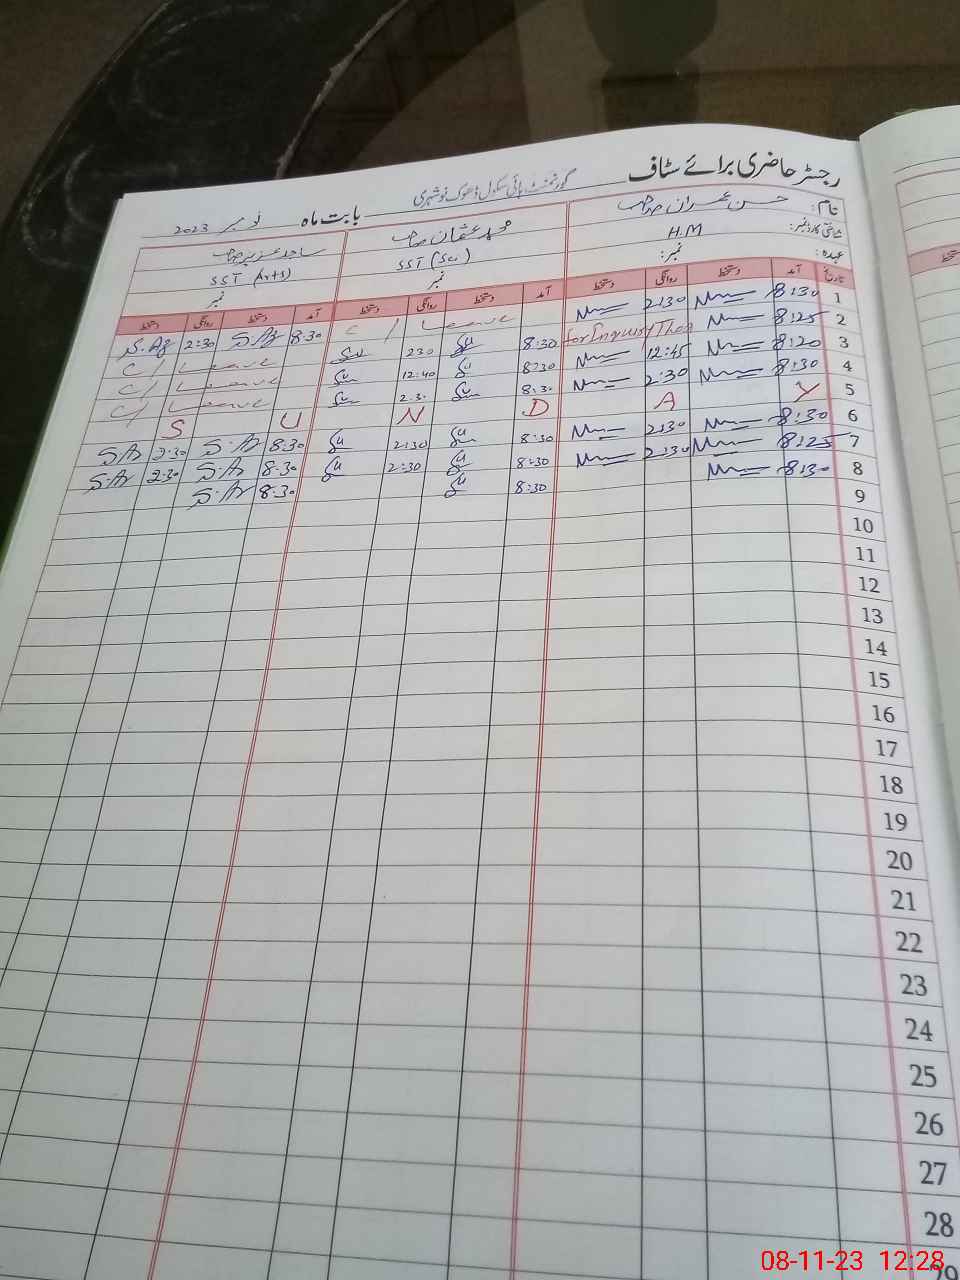 رجسٹر حاضری برائے سٹاف
گورنمنٹ ہائی سکول ڈھوک نوشہری بابت ماہ نومبر 2023
نام: حسن عمران صاحب محمد عثمان صاحب ساجد عزیز صاحب
شناختی کارڈ نمبر:
عہدہ: H.M SST (Sci) SST (Arts)
نمبر: نمبر نمبر
تاریخ آمد دستخط روانگی دستخط آمد دستخط روانگی دستخط آمد دستخط روانگی دستخط
1 8:30 2:30 C/ Leave 8:30 S.Az 2:30 S.Az
2 8:25 for Inquiry 8:30 2:30 C/ Leave
3 8:20 12:45 8:30 12:40 C/ Leave
4 8:30 2:30 8:30 2:30 C/ Leave
5 S U N D A Y
6 8:30 2:30 8:30 2:30 8:30 S.Az 2:30 S.Az
7 8:25 2:30 8:30 2:30 8:30 S.Az 2:30 S.Az
8 8:30 8:30 8:30 S.Az
9
10
11
12
13
14
15
16
17
18
19
20
21
22
23
24
25
26
27
28
29
08-11-23 12:28